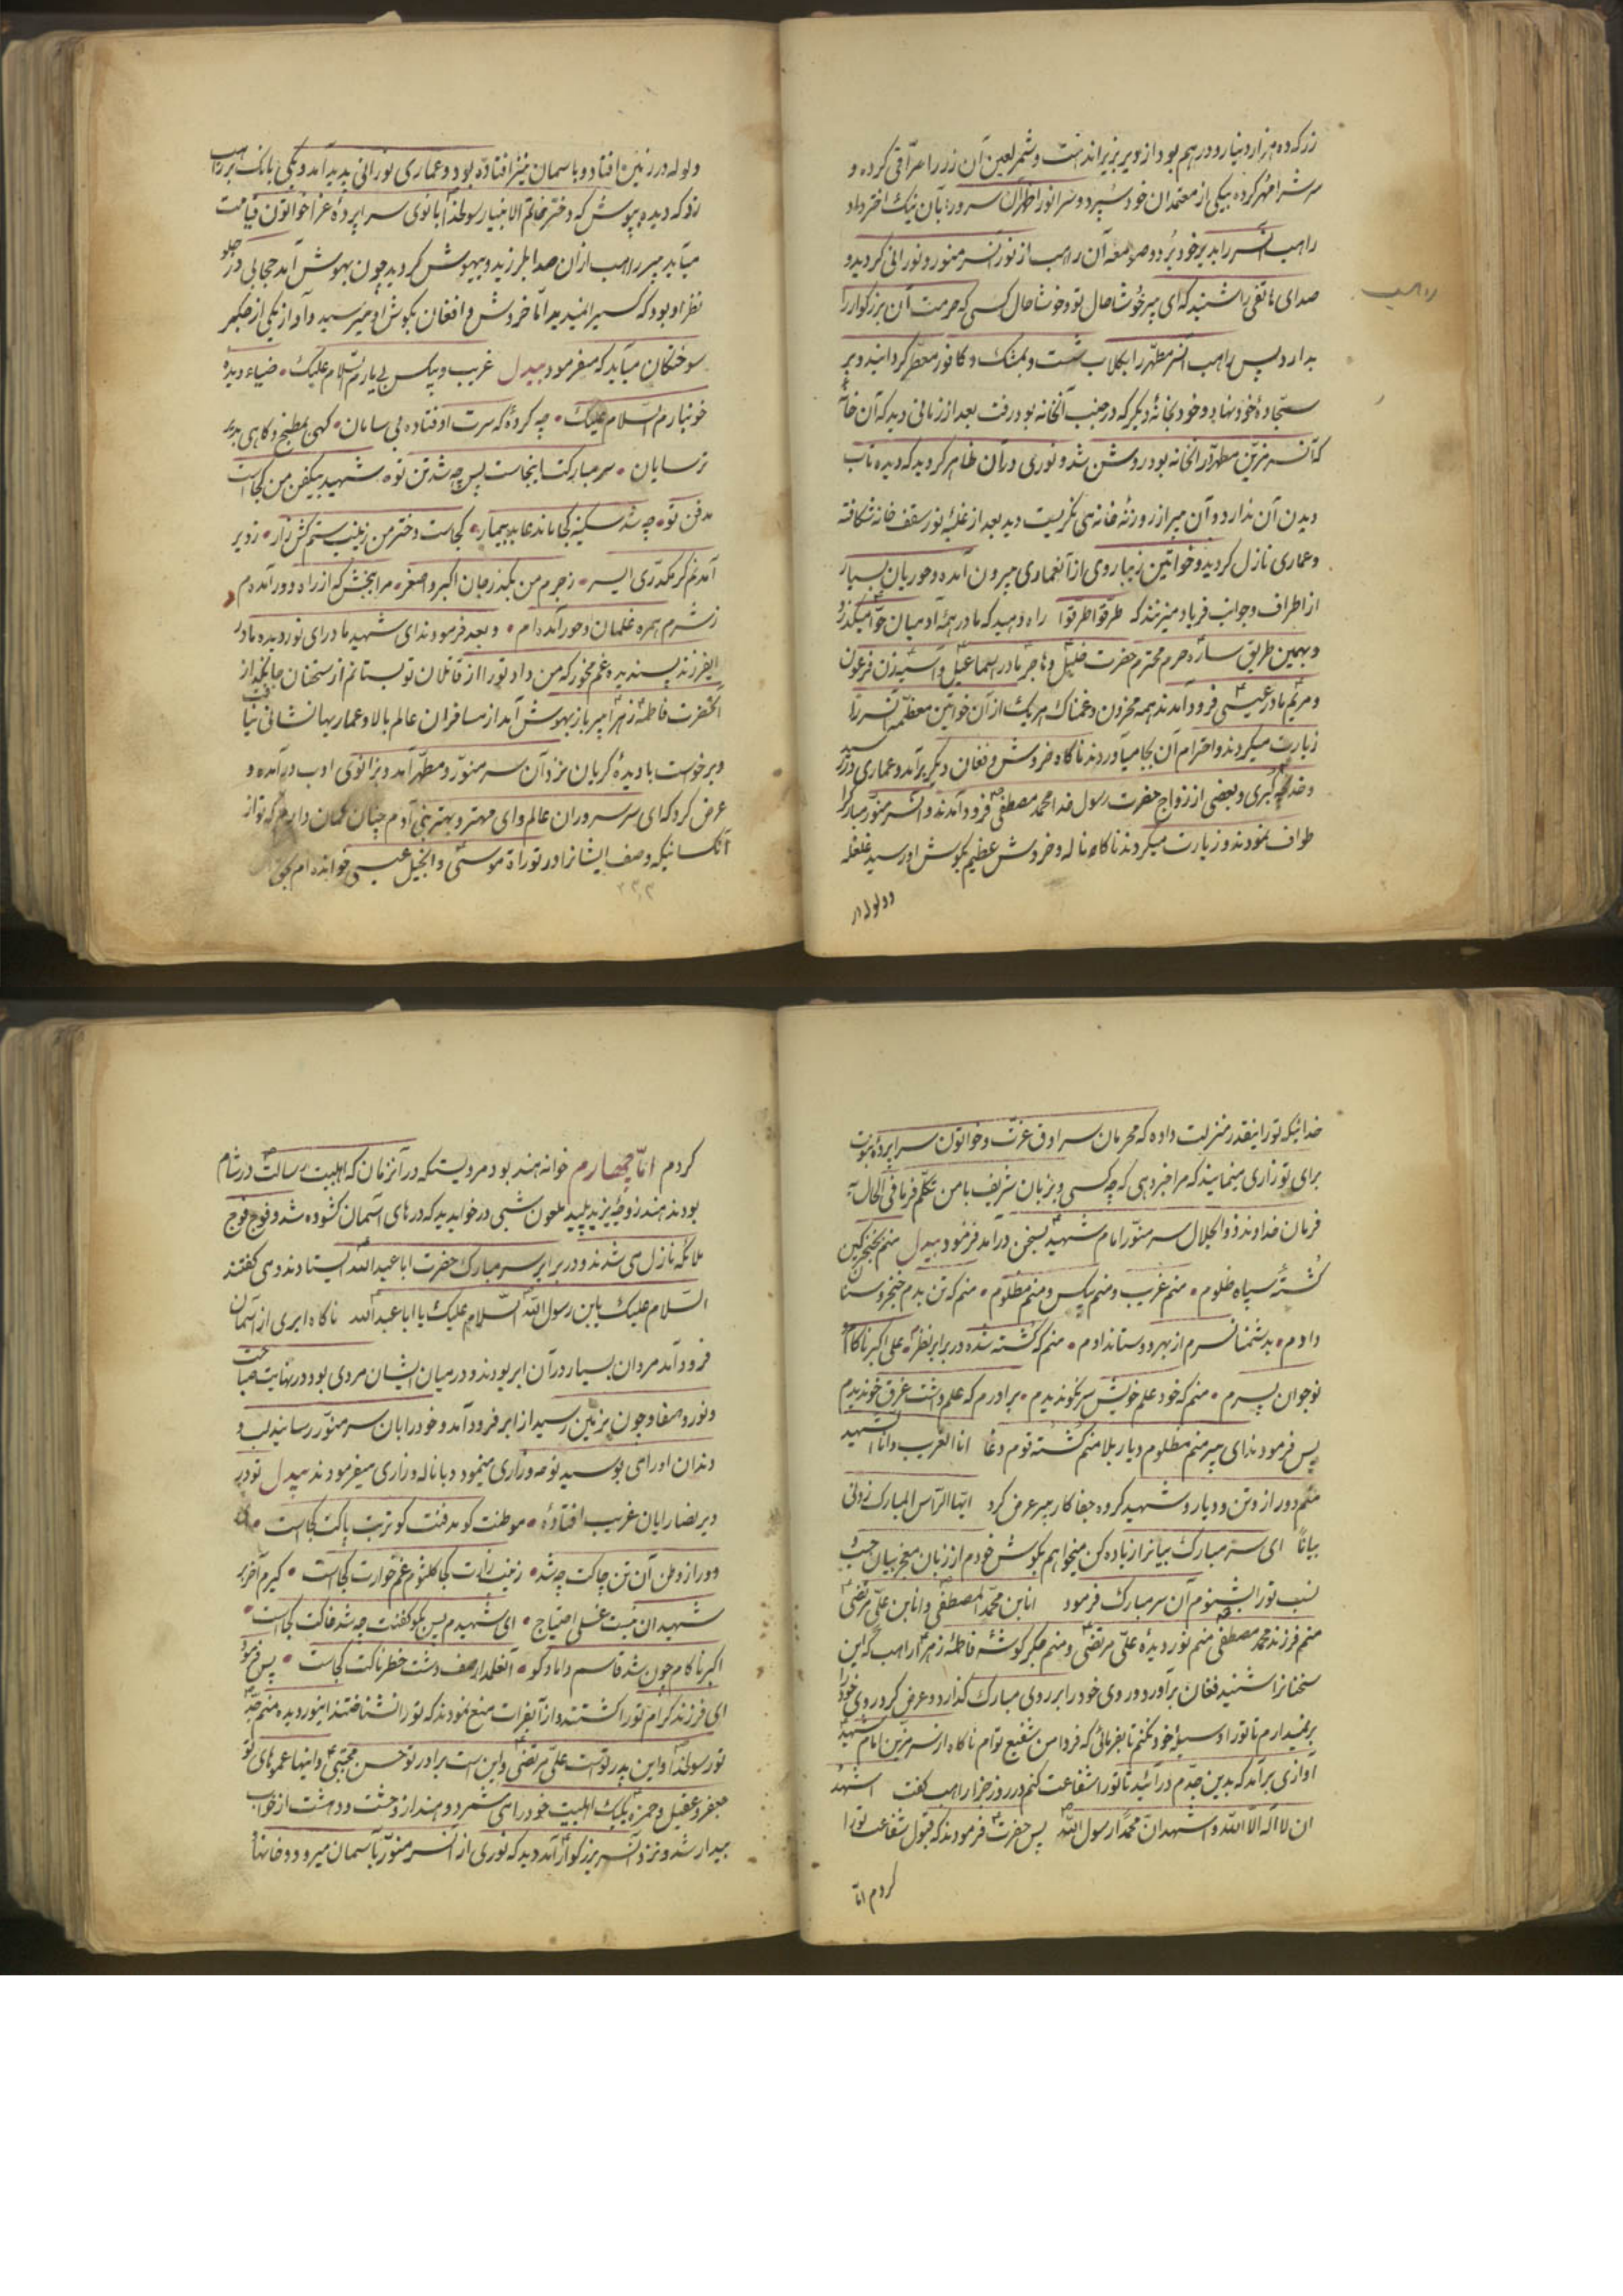 زر که ده هزار دینار و درهم بود از دیر بزیر انداخت و شمر لعین آن زر را صرّافی کرده و
سرش را مهر کرده بیکی از معتمدان خود سپرد و سر انور اطهر آن سرور را بآن نیک اختر داد
راهب آنسر را بدیر خود برد و صومعه آن راهب از نور آنسر منور و نورانی گردید و
صدای هاتفی را شنید که ای پیر خوشا حال تو و خوشا حال کسی که حرمت آن بزرگوار را
راهب
بدارد پس راهب آنسر مطهّر را بگلاب شست و بمشک و کافور معطّر گردانید و بر
سجّادهٔ خود نهاد و خود بخانهٔ دیگر که در جنب آنخانه بود رفت بعد از زمانی دید که آن خانه
که آنسر مزیّن مطهّر در آنخانه بود روشن شد و نوری در آن ظاهر گردید که دیده تاب
دیدن آن ندارد و آن پیر از روزنهٔ خانه می نگریست دید بعد از غلبهٔ نور سقف خانه شکافته
و عماری نازل گردید و خواتین زیبا روی از آنعماری بیرون آمده و حوریان بسیار
از اطراف و جوانب فریاد میزنند که طرقوا طرّقوا راه دهید که مادر همهٔ آدمیان حوّا میگذرد
و بهمین طریق ساره حرم محترم حضرت خلیل و هاجر مادر اسماعیل و آسیه زن فرعون
و مریم مادر عیسی فرود آمدند همه محزون و غمناک هر یک از آن خواتین معظّمه آنسر را
زیارت میکردند و احترام آن بجا میآوردند ناگاه خروش و فغان دیگر برآمد و عماری در رسید
و خدیجه کبری و بعضی از زواج حضرت رسول خدا محمد مصطفی فرود آمدند و آنسر منوّر مبارک را
طواف نمودند و زیارت میکردند ناگاه ناله و خروش عظیم بگوش او رسید غلغله
و ولوله در
ولوله در زمین افتاد و باسمان نیز افتاده بود و عماری نورانی پدید آمد و یکی بانک بر راهب
زد که دیده بپوش که دختر خاتم الانبیا رسولخدا بانوی سراپردهٔ عزا خواتون قیامت
میآید پیر راهب از آن صدا بلرزید و بیهوش گردید چون بهوش آمد حجابی در جلو
نظر او بود که کسیرا نمیدید امّا خروش و افغان بگوش او میرسید و آواز یکی از جگر
سوختگان میآید که میفرمود بیدل غریب و بیکس بی یارم السّلام علیک ٠ ضیاء دیدهٔ
خونبارم السّلام علیک ٠ چه کردهٔ که سرت اوفتاده بی سامان ٠ گهی بمطبخ و گاهی بدیر
ترسایان ٠ سر مبارکت اینجاست پس چه شد تن تو ٠ شهید بیکفن من کجاست
مدفن تو ٠ چه شد سکینه کجا ماند عابد بیمار ٠ کجاست دختر من زینب ستم کش زار ٠ ز دیر
آمدنم گر مکدّری ای سر ٠ ز جرم من بگذر جان اکبر و اصغر ٠ مرا ببخش که از راه دور آمده‌ام
ز شرم همره غلمان و حور آمده‌ام ٠ و بعد فرمودند ای شهید مادر ای نور دیده مادر
ایفرزند پسندیده غم مخور که من داد تو را از قاتلان تو بستانم از سخنان جانگداز
آنحضرت فاطمه زهرا پیر باز بیهوش آمد از مسافران عالم بالا و عماریها نشانی نیافت
و برخواست با دیدهٔ گریان نزد آن سر منوّر و مطهّر آمد و بزانوی ادب درآمده و
عرض کرد که ای سر سروران عالم و ای مهتر و بهتر بنی آدم چنان گمان دارم که تو از
آنکسانیکه وصف ایشانرا در توراة موسی و انجیل عیسی خوانده‌ام بحق
٢٣٣
خدائیکه تو را اینقدر منزلت داده که محرمان سرادق عزّت و خواتون سراپردهٔ نبوّت
برای تو زاری مینمایند که مرا خبر دهی که چه کسی و بزبان شریف با من تکلّم فرما فی الحال به
فرمان خداوند ذوالجلال سر منوّر امام شهید بسخن درآمد فرمود بیدل منم بخنجر کین
کُشتهٔ سپاه ظلوم ٠ منم غریب و منم بیکس و منم مظلوم ٠ منم که تن بدم خنجر و سنان
دادم ٠ بدشمنان سرم از بهر دوستان دادم ٠ منم که کُشته شده در برابر نظرم ٠ علی اکبر ناکام
نوجوان پسرم ٠ منم که خود علم خویش سرنگون دیدم ٠ برادرم که علم داشت غرق خون دیدم
پس فرمودند ای پیر منم مظلوم دیار بلا منم کُشته قوم دغا انا الغریب و انا الشهید
منم دور از وتن و دیار و شهید گروه جفا کار پیر عرض کرد ایّها الرّأس المبارک زدنی
بیاناً ای سر مبارک بیانرا زیاده کن میخواهم بگوش خودم از زبان معجز بیان حسب
نسب تو را بشنوم آن سر مبارک فرمود انا بن محمّد المصطفی و انا بن علیّ مرتضی
منم فرزند محمد مصطفی منم نور دیدهٔ علیّ مرتضی و منم جگر گوشهٔ فاطمهٔ زهرا راهب که این
سخنانرا شنید فغان برآورد و روی خود را بر روی مبارک گذارد و عرض کرد روی خود را
برنمیدارم تا تو را وسیلهٔ خود نکنم تا بفرمائی که فردا من شفیع تو‌ام ناگاه از سر مزیّن امام شهید
آوازی برآمد که بدین جدّم درآئید تا تو را شفاعت کنم در روز جزا راهب گفت اشهد
ان لا اله الا الله و اشهد انّ محمّداً رسول الله پس حضرت فرمودند که قبول شفاعت تو را
کردم امّا
کردم امّا چهارم خوانه هند بود مرویستکه در آنزمان که اهلبیت رسالت در شام
بودند هند زوجهٔ یزید پلید ملعون شبی در خواب دید که درهای آسمان کشوده شد و فوج فوج
ملائکه نازل می شدند و در برابر سر مبارک حضرت ابا عبد الله ایستادند و می گفتند
السّلام علیک یابن رسول الله السّلام علیک یا ابا عبد الله ناگاه ابری از آسمان
فرود آمد مردان بسیار در آن ابر بودند و در میان ایشان مردی بود در نهایت صباحت
و نور و صفا و چون بزمین رسید از ابر فرود آمد و خود را بآن سر منوّر رسانید لب و
دندان او را می بوسید نوحه و زاری مینمود و با ناله و زاری میفرمودند بیدل تو در
دیر نصارایان غریب افتادهٔ ٠ موطنت کو مدفنت کو تربت پاکت کجاست ٠ ای
دور از وطن آن تن چاکت چه شد ٠ زینب زارت کجا کلثوم غمخوارت کجاست ٠ گیرم آخر بر
شهیدان نیست غسلی احتیاج ٠ ای شهیدم پس بگو کفنت چه شد خاکت کجاست ٠
اکبر ناکام چون شد قاسم داماد کو ٠ آنعلمدار صف دشت خطرناکت کجاست ٠ پس فرمود
ای فرزند گرام تو را کشتند و از آبفرات منع نمودند که تو را نشناختند اینور دیده منم جدّ
تو رسولخدا و این پدر تو است علیّ مرتضی و این است برادر تو حسن مجتبی و اینها عموهای تو
جعفر و عقیل و حمزه یکیک اهلبیت خود را می شمرد و هند از وحشت و دهشت از خواب
بیدار شد و نزد آنسر بزرگوار آمد دید که نوری از آنسر منوّر بآسمان میرود و خانها